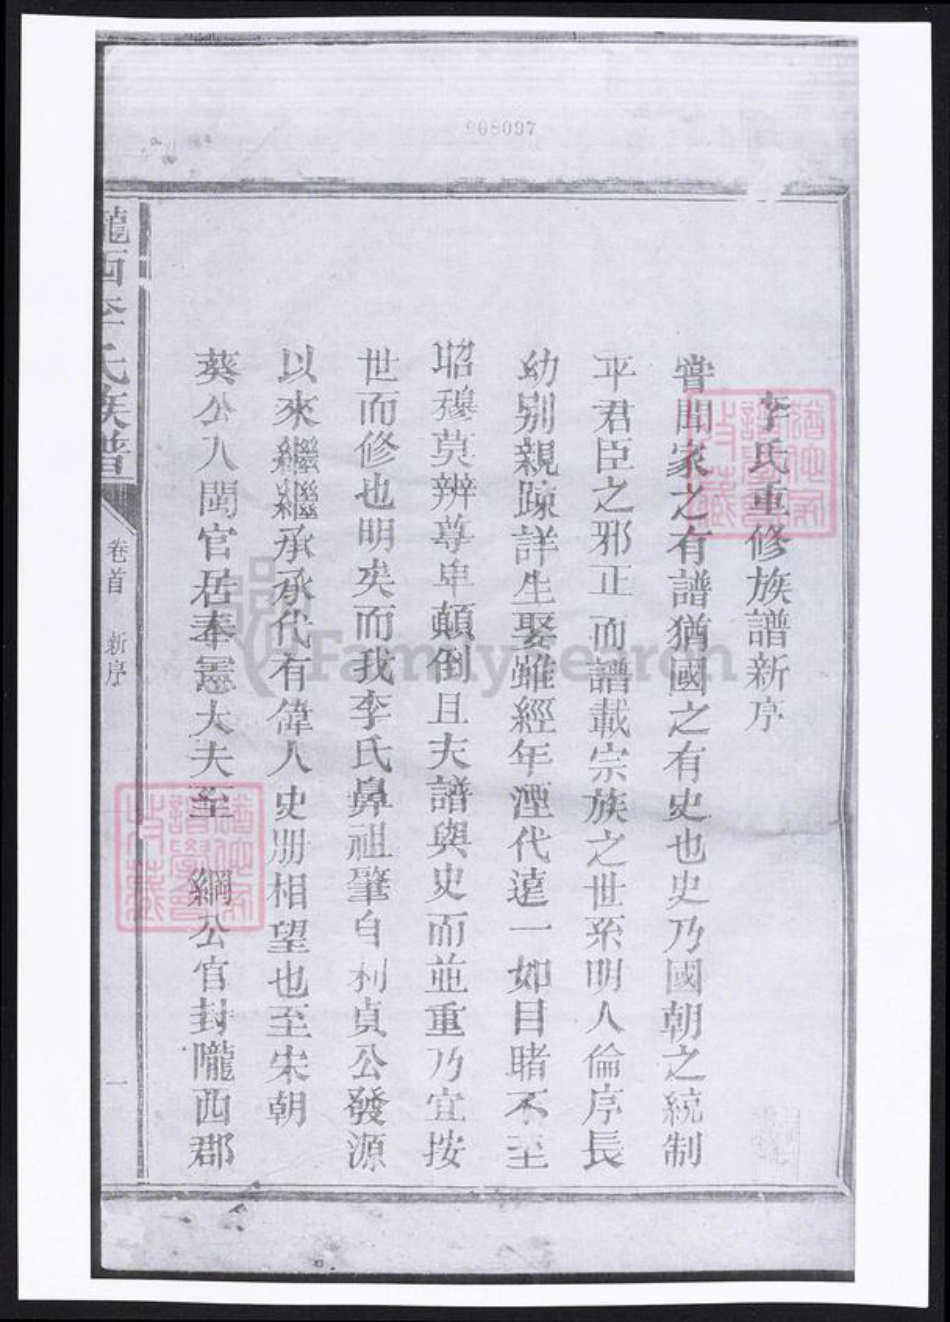 908097
李氏重修族譜新序
嘗聞家之有譜猶國之有史也史乃國朝之統制
平君臣之邪正而譜載宗族之世系明人倫序長
幼别親疎詳生娶雖經年湮代遠一如目睹不至
昭穆莫辨尊卑顛倒且夫譜與史而並重乃宜按
世而修也明矣而我李氏鼻祖肇自利貞公發源
以來繼繼承承代有偉人史册相望也至宋朝
葵公入閩官居奉憲大夫至 綱公官封隴西郡
隴西李氏族譜
卷首 新序 一
FamilySearch